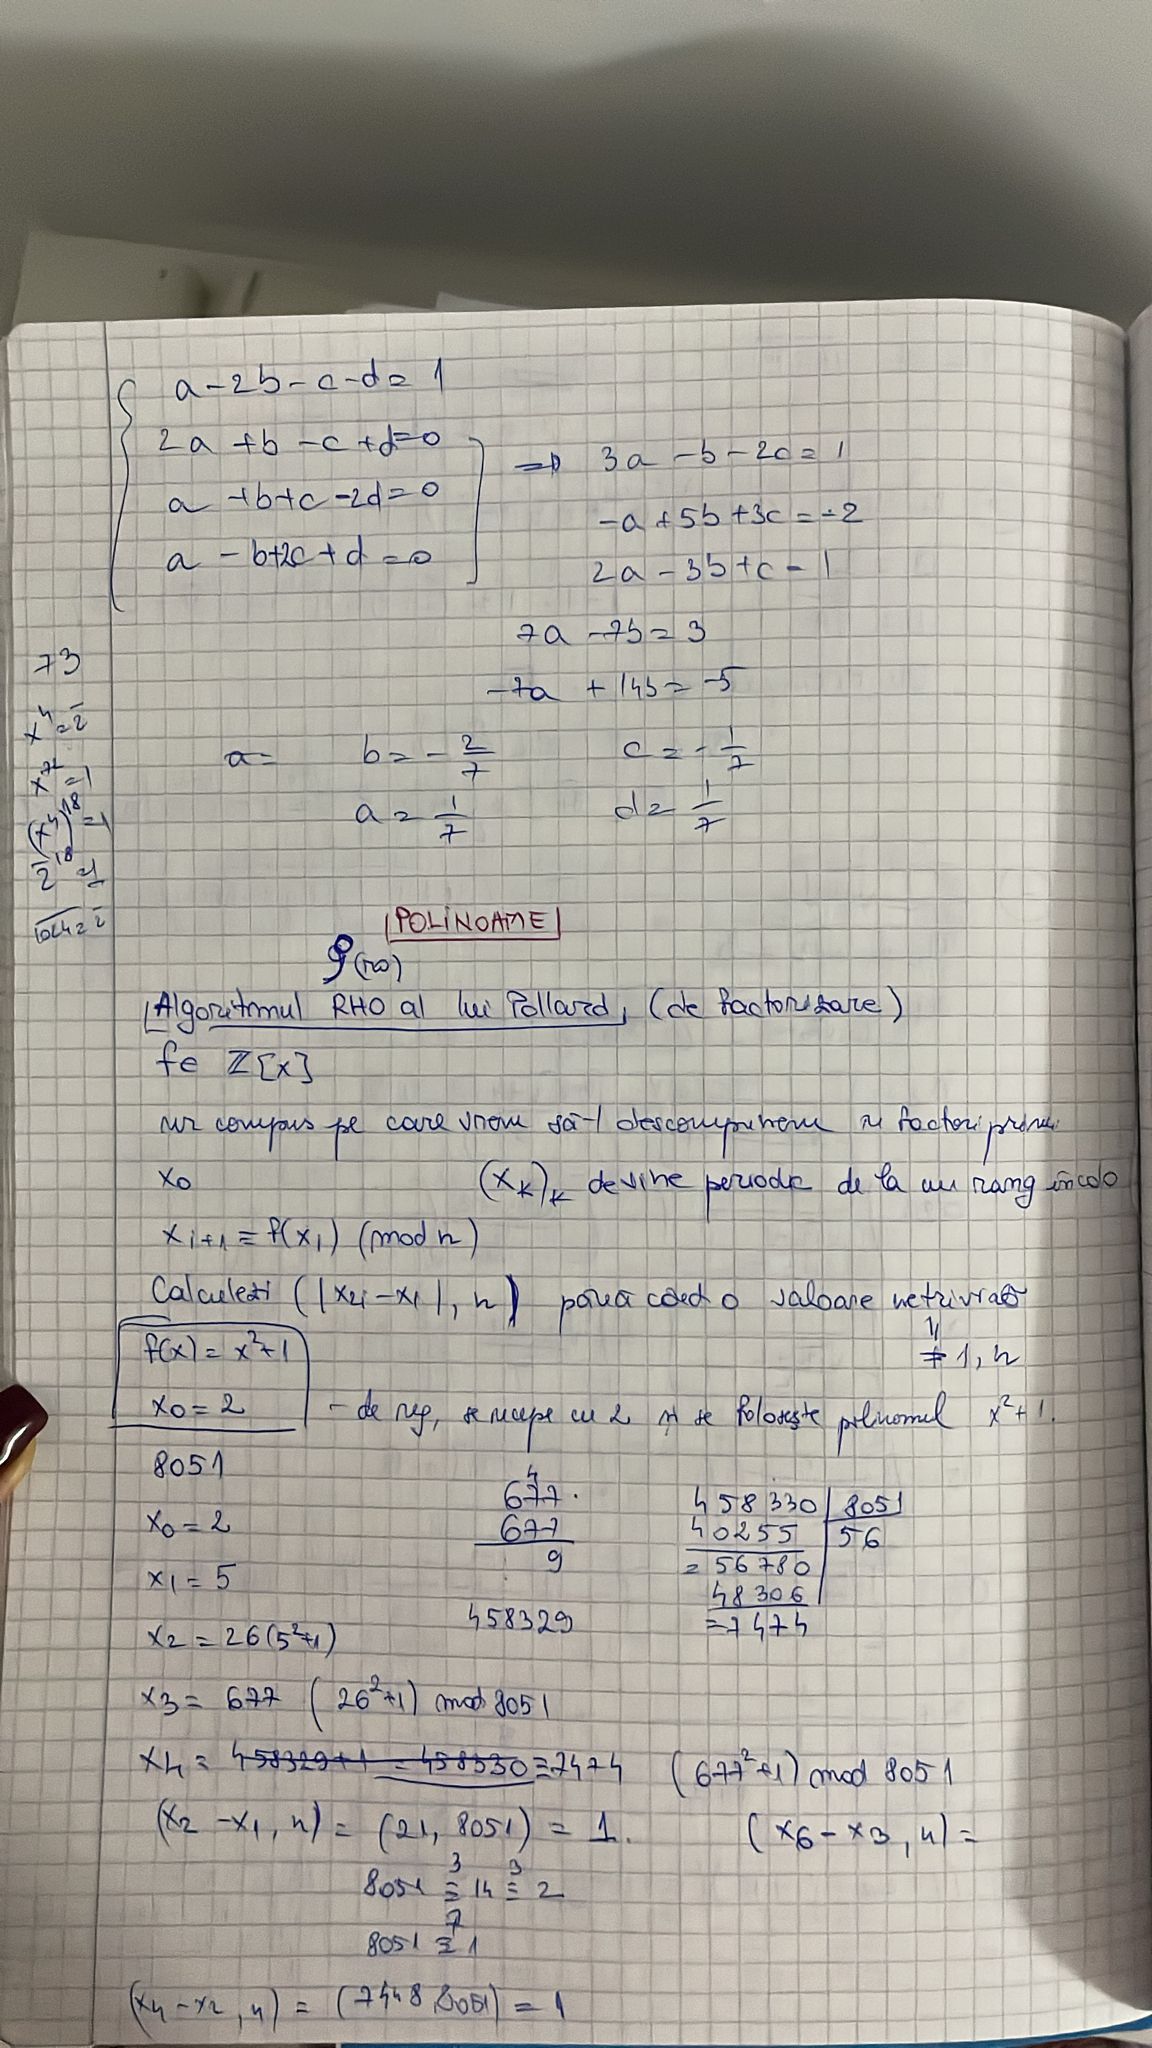 a - 2b - c - d = 1
2a + b - c + d = 0
a + b + c - 2d = 0
a - b + 2c + d = 0
=> 3a - b - 2c = 1
-a + 5b + 3c = -2
2a - 3b + c = 1
7a - 7b = 3
-7a + 14b = -5
a = b = -2/7 c = -1/7
a = 1/7 d = 1/7
73
x^4 = 2̄
x^72 = 1
(x^4)^18 = 1
2̄^18 = 1
1024 = 2̄
POLINOAME
ρ (ro)
Algoritmul RHO al lui Pollard, (de factorizare)
f ∈ ℤ[x]
nr compus pe care vrem să-l descompunem în factori primi
x0 (x_k)_k devine periodic de la un rang încolo
x_{i+1} ≡ f(x_i) (mod n)
Calculezi (|x_{2i} - x_i|, n) până când o valoare netrivială
≠ 1, n
f(x) = x²+1
x0 = 2 - de reg, se începe cu 2 și se folosește polinomul x²+1.
8051
x0 = 2
x1 = 5
x2 = 26 (5²+1)
4
677 ·
677
9
458329
458330 | 8051
40255 | 56
= 56780
48306
= 7474
x3 = 677 (26²+1) mod 8051
x4 = 458329+1 = 458330 ≡ 7474 (677²+1) mod 8051
(x2 - x1, n) = (21, 8051) = 1. (x6 - x3, n) =
8051 ≡³ 14 ≡³ 2
8051 ≡⁷ 1
(x4 - x2, n) = (7448, 8051) = 1